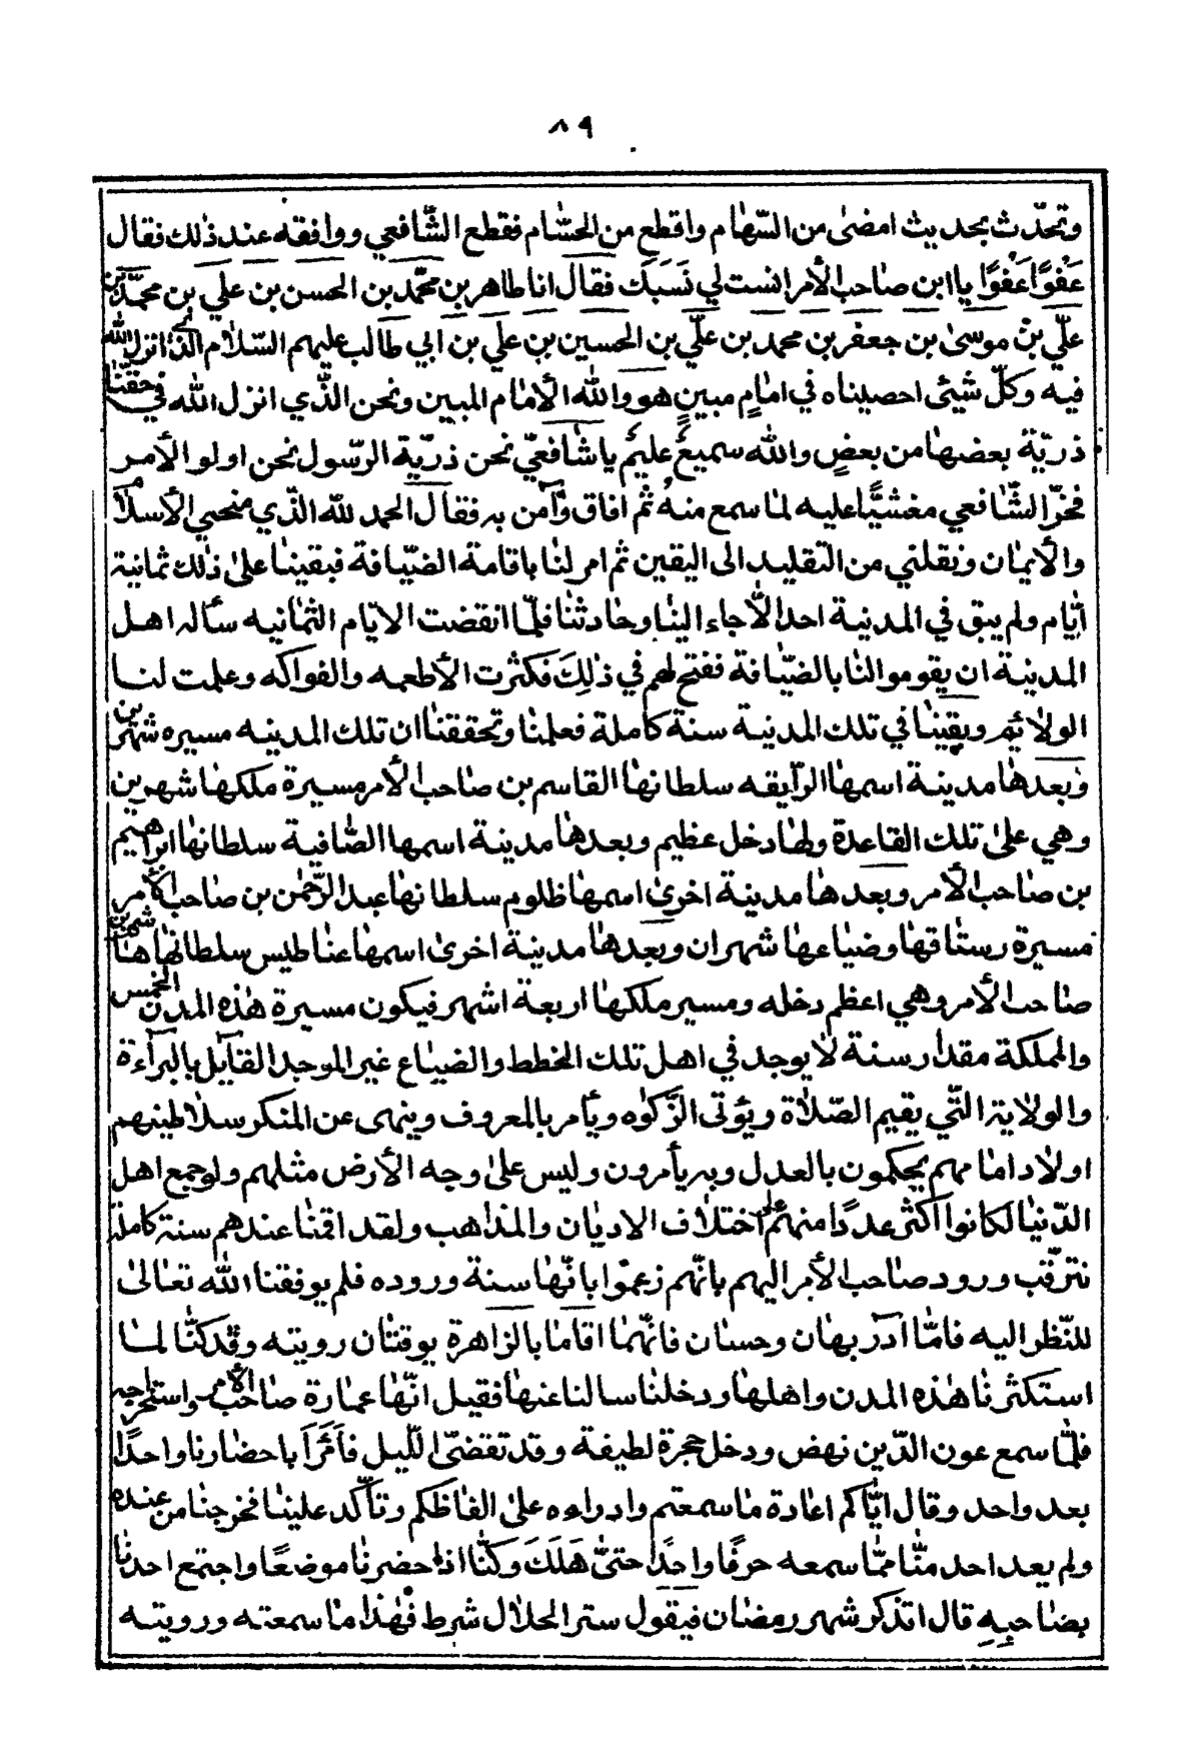 ٨٩
وتحدّث بحديث امضىٰ من السّهام واقطع من الحسّام فقطع الشّافعي ووافقه عند ذٰلك فقال
عَفوًا عَفوًا ياا ابن صاحب الأمر انست لي نَسَبَكَ فقال انا طاهر بن محمّد بن الحسن بن علي بن محمّد بن
علّي بن موسىٰ بن جعفر بن محمد بن علّي بن الحسين بن علّي بن ابي طالب عليهم السّلام الذي انزل الله
فيه وكلّ شيئى احصيناه في امامٍ مبينٍ هو والله الأمام المبين ونحن الذّي انزل الله في حقّنا
ذريّة بعضها من بعضٍ والله سميعٌ عليمٌ يا شافعيّ نحن ذريّة الرّسول نحن اولو الأمر
فخرّ الشّافعي مغشيًّا عليه لما سمع منهُ ثمّ افاق وآمن به فقال الحمد لله الذّي منحيي الأسلام
والأيمان ونقلني من التقليد الى اليقين ثم امر لنا باقامة الضيّافة فبقينا علىٰ ذٰلك ثمانية
ايّام ولم يبق في المدينة احد الّا جاء الينا وحادثنا فلمّا انقضت الايّام الثمانيه سأله اهل
المدينة ان يقوموا لنا بالضيّافة ففتح لهم في ذٰلِكَ فكثرت الأطعمه والفواكه وعملت لنا
الولائم وبقينا في تلك المدينة سنة كاملة فعلمنا وتحققنا ان تلك المدينه مسيره شهرين
وبعدها مدينة اسمها الرّايقه سلطانها القاسم بن صاحب الأمر مسيرة ملكها شهرين
وهي علىٰ تلك القاعدة ولها دخل عظيم وبعدها مدينة اسمها الصّافية سلطانها ابراهيم
بن صاحب الأمر وبعدها مدينة اخرىٰ اسمها ظلوم سلطانها عبد الرّحمٰن بن صاحب الأمر
مسيرة رستاقها وضياعها شهران وبعدها مدينة اخرىٰ اسمها عناطيس سلطانها هاشم بن
صاحب الأمر وهي اعظم دخله ومسير ملكها اربعة اشهر فيكون مسيرة هٰذه المدن الخمس
والمملكة مقدار سنة لا يوجد في اهل تلك الخطط والضياع غير الموحد القآيل بالبرآءة
والولاية التّي يقيم الصّلاة ويؤتى الزّكوٰه ويأمر بالمعروف وينهى عن المنكر سلاطينهم
اولاد امامهم يحكمون بالعدل وبه يأمرون وليس علىٰ وجه الأرض مثلهم ولو جمع اهل
الدّنيا لكانوا اكثر عددًا منهم علي اختلاف الاديان والمذاهب ولقد اقمنا عندهم سنة كاملة
نترقّب ورود صاحب الأمر اليهم بانّهم زعموا بانّها سنة وروده فلم يوفقنا الله تعالىٰ
للنّظر اليه فامّا آدر بهان وحسان فانّهما اقاما بالزاهرة يوقتان رويته وقد كنّا لما
استكثرنا هٰذه المدن واهلها ودخلنا سالنا عنها فقيل انّها عمارة صاحب الأمر واستخراجه
فلمّا سمع عون الدّين نهض ودخل حجرة لطيفة وقد تقضّى اللّيل فأَمَرَ باحضارنا واحدًا
بعد واحد وقال ايّاكم اعادة ما سمعتم وادواءه علىٰ الفاظكم وتأكّد علينا فخرجنا من عنده
ولم يعد احد منّا ممّا سمعه حرفًا واحدًا حتىّٰ هَلَكَ وكنّا اذا حضرنا موضعًا واجتمع احدنا
بصاحبه قال اتذكر شهر رمضان فيقول ستر الحلال شرط فهٰذا ما سمعته ورويته